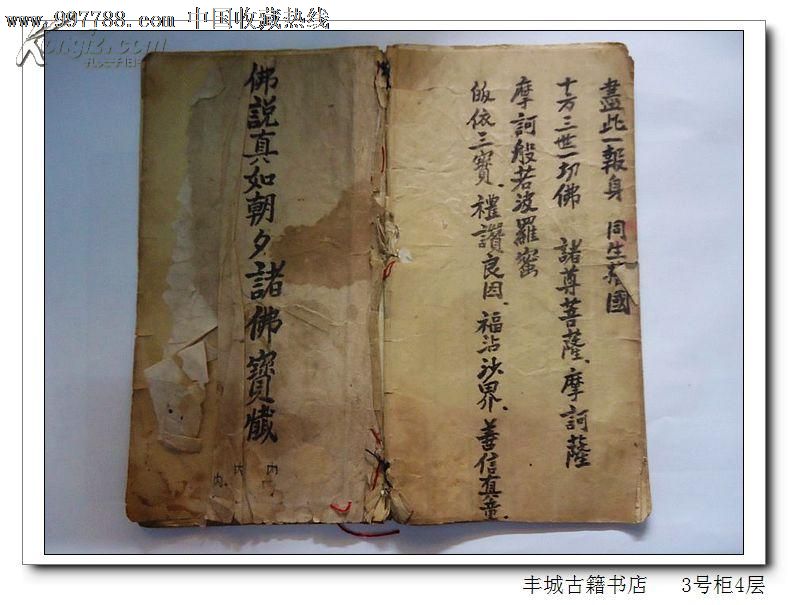 www.997788.com 中国收藏热线
Kongfz.com
盡此一報身 同生 國
十方三世一切佛 諸尊菩薩、摩訶薩
摩訶般若波羅蜜
皈依三寶、禮讚良因、福沾沙界、善信真童、
佛説真如朝夕諸佛寶懴
内
内
内
丰城古籍书店 3号柜4层